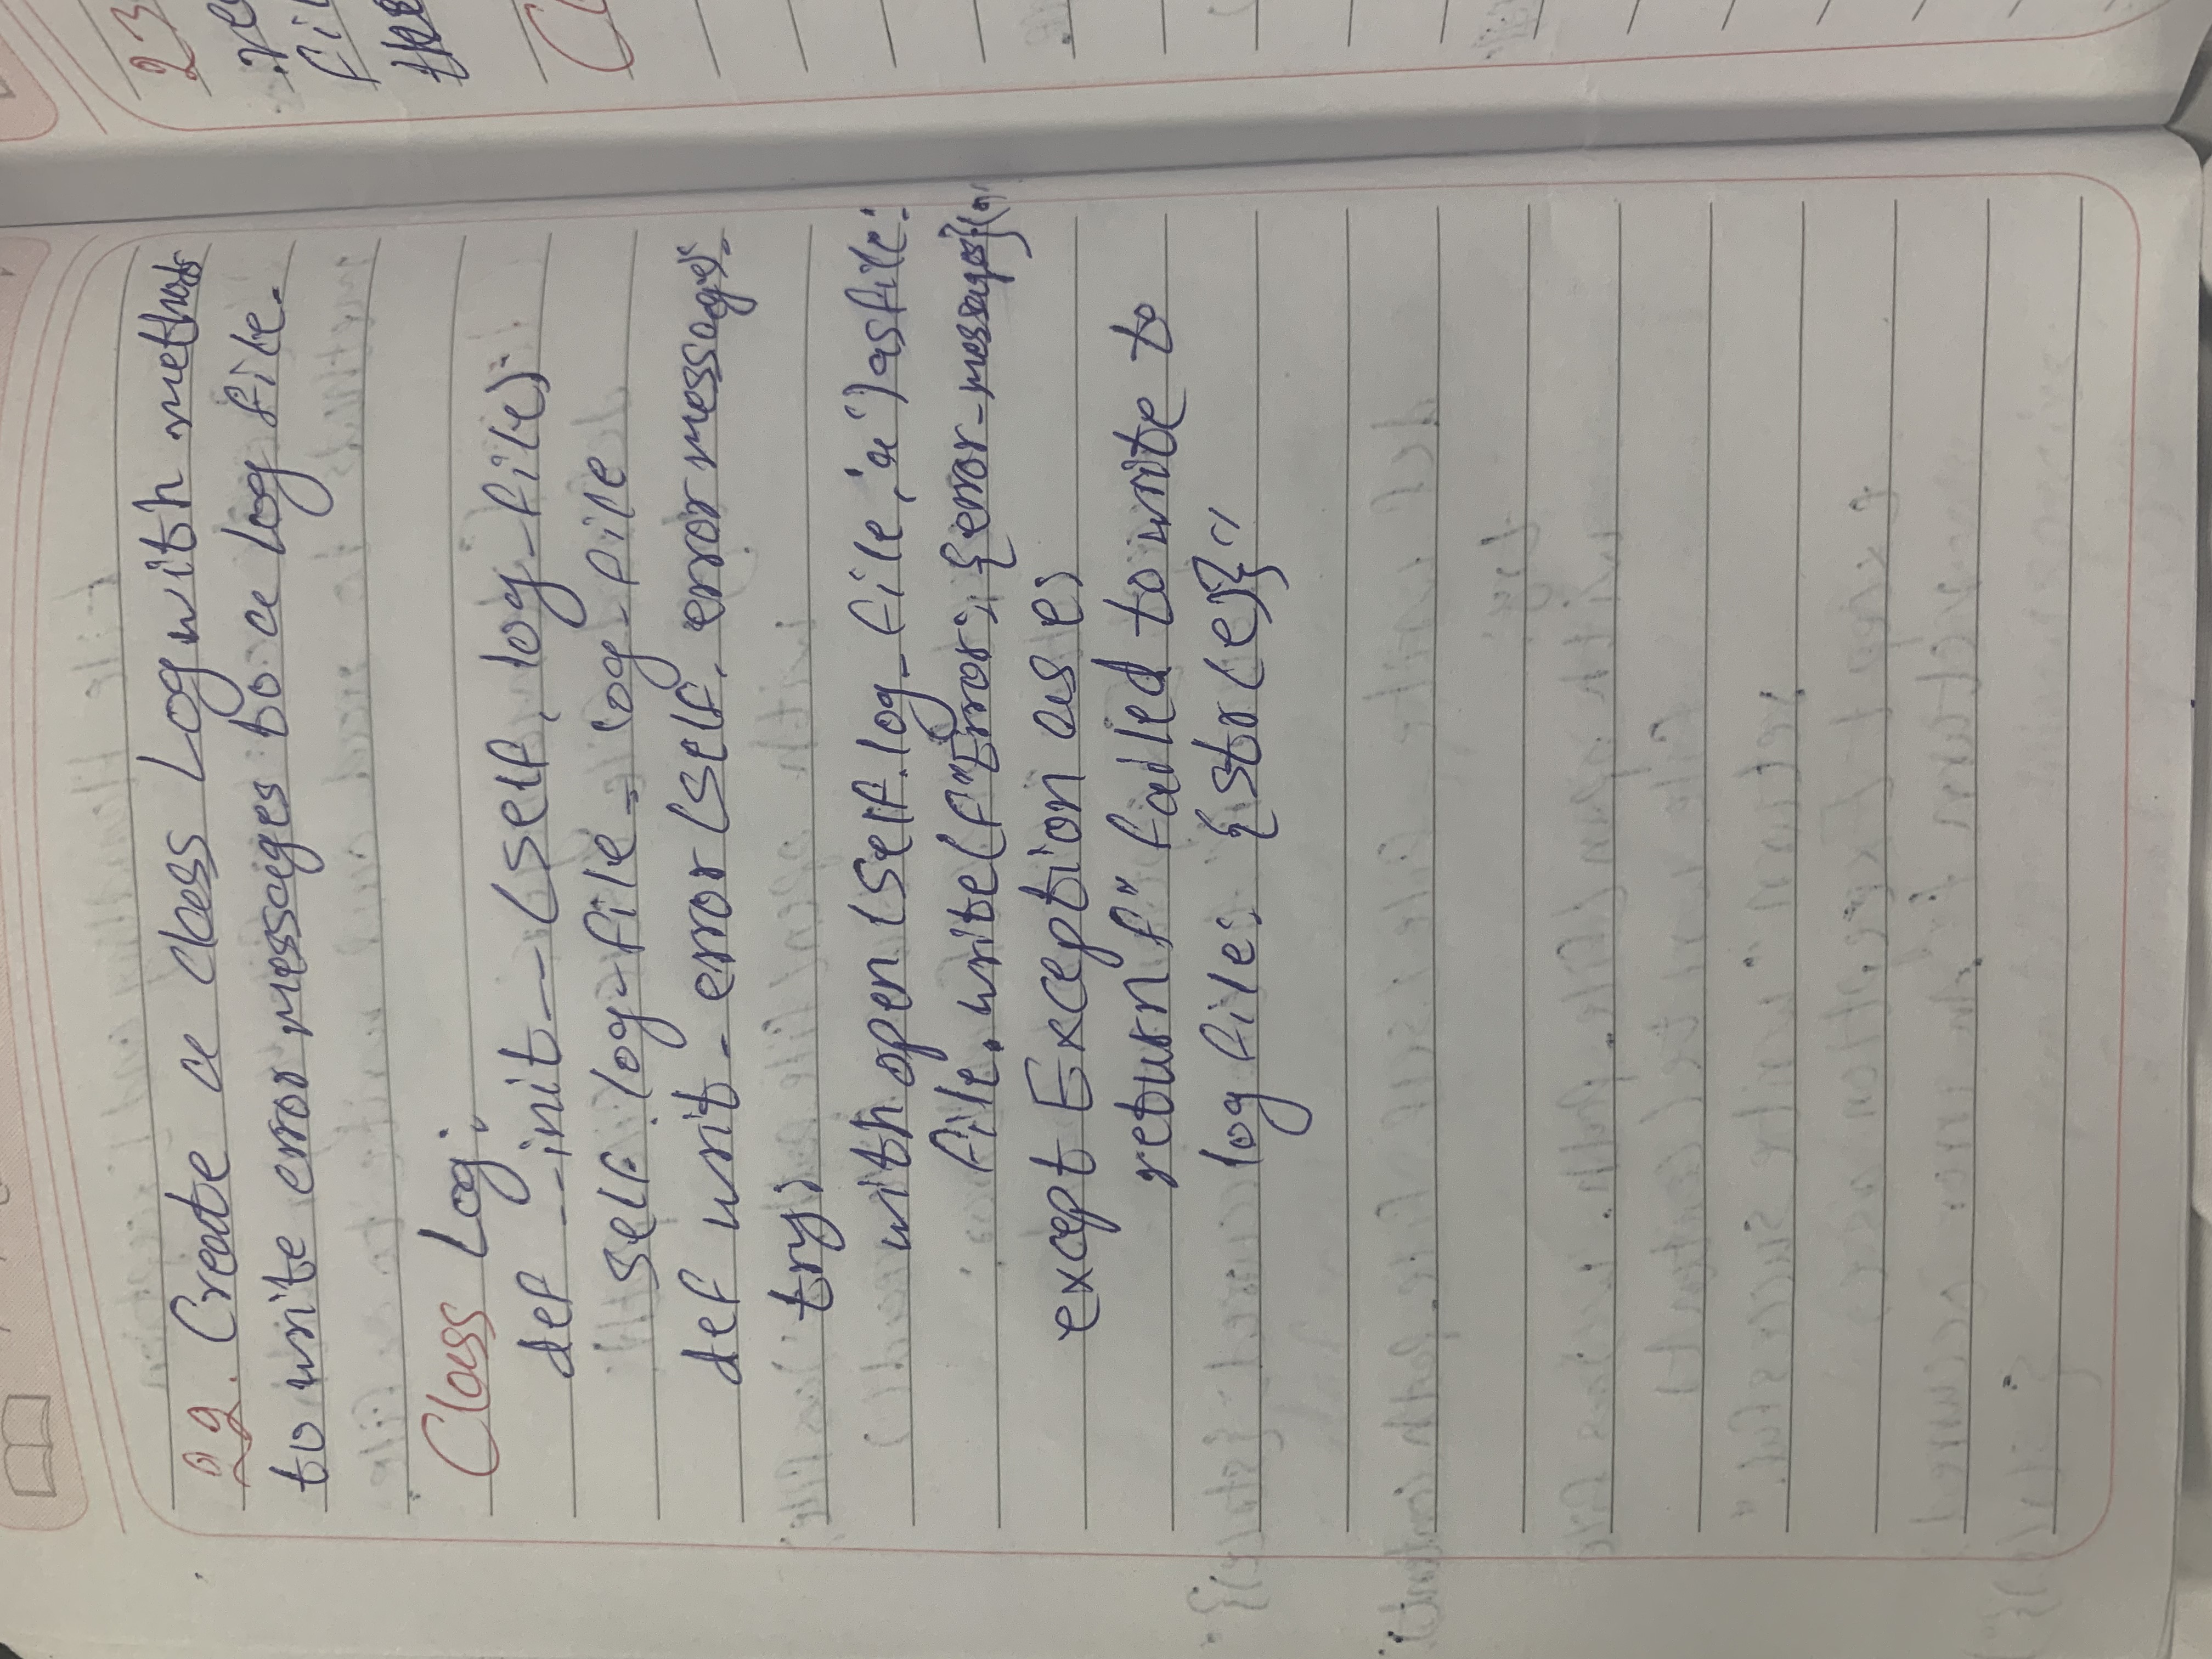 22. Create a class Log with methods
to write error messages to a log file.
Class Log:
def __init__(self, log_file):
self.log_file = log_file
def writ_error(self, error message):
try:
with open(self.log_file, 'a') as file:
file.write(f"Error: {error_messages}
except Exception as e:
return f" failed to write to
log file: {str(e)}"
23